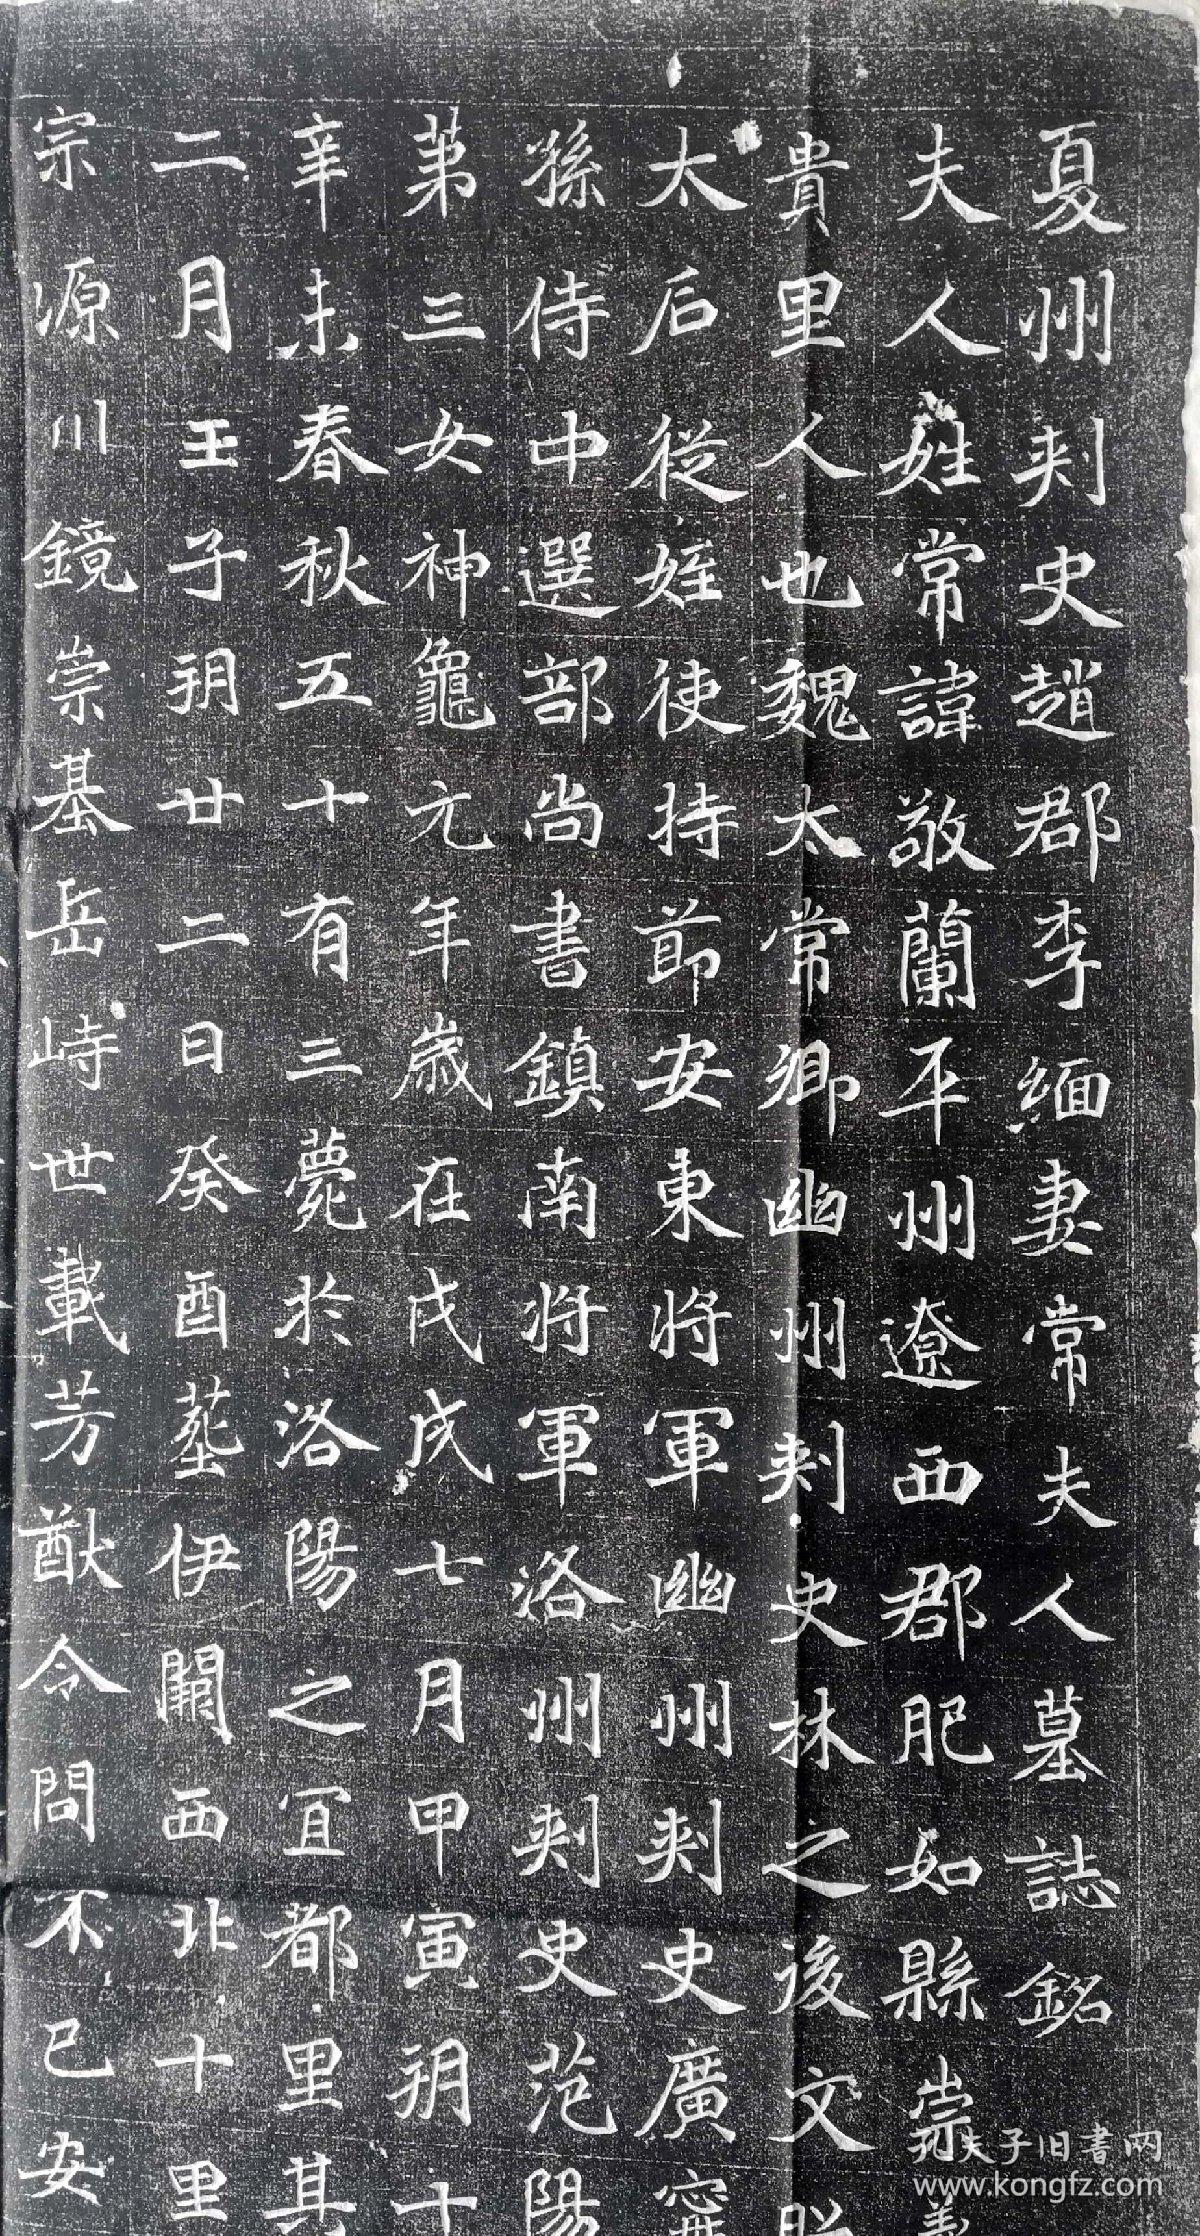 夏州刺史趙郡李緬妻常夫人墓誌銘
夫人姓常諱敬蘭平州遼西郡肥如縣崇義
貴里人也魏太常卿幽州刺史林之後文
太后從姪使持節安東將軍幽州刺史廣寧
孫侍中選部尚書鎮南將軍洛州刺史范陽
第三女神龜元年歲在戊戌七月甲寅朔十
辛未春秋五十有三薨於洛陽之宜都里其
二月壬子朔廿二日癸酉葬伊闕西北十里
宗源川鏡崇基岳峙世載芳猷令問不已安
孔夫子旧書网
www.kongfz.com